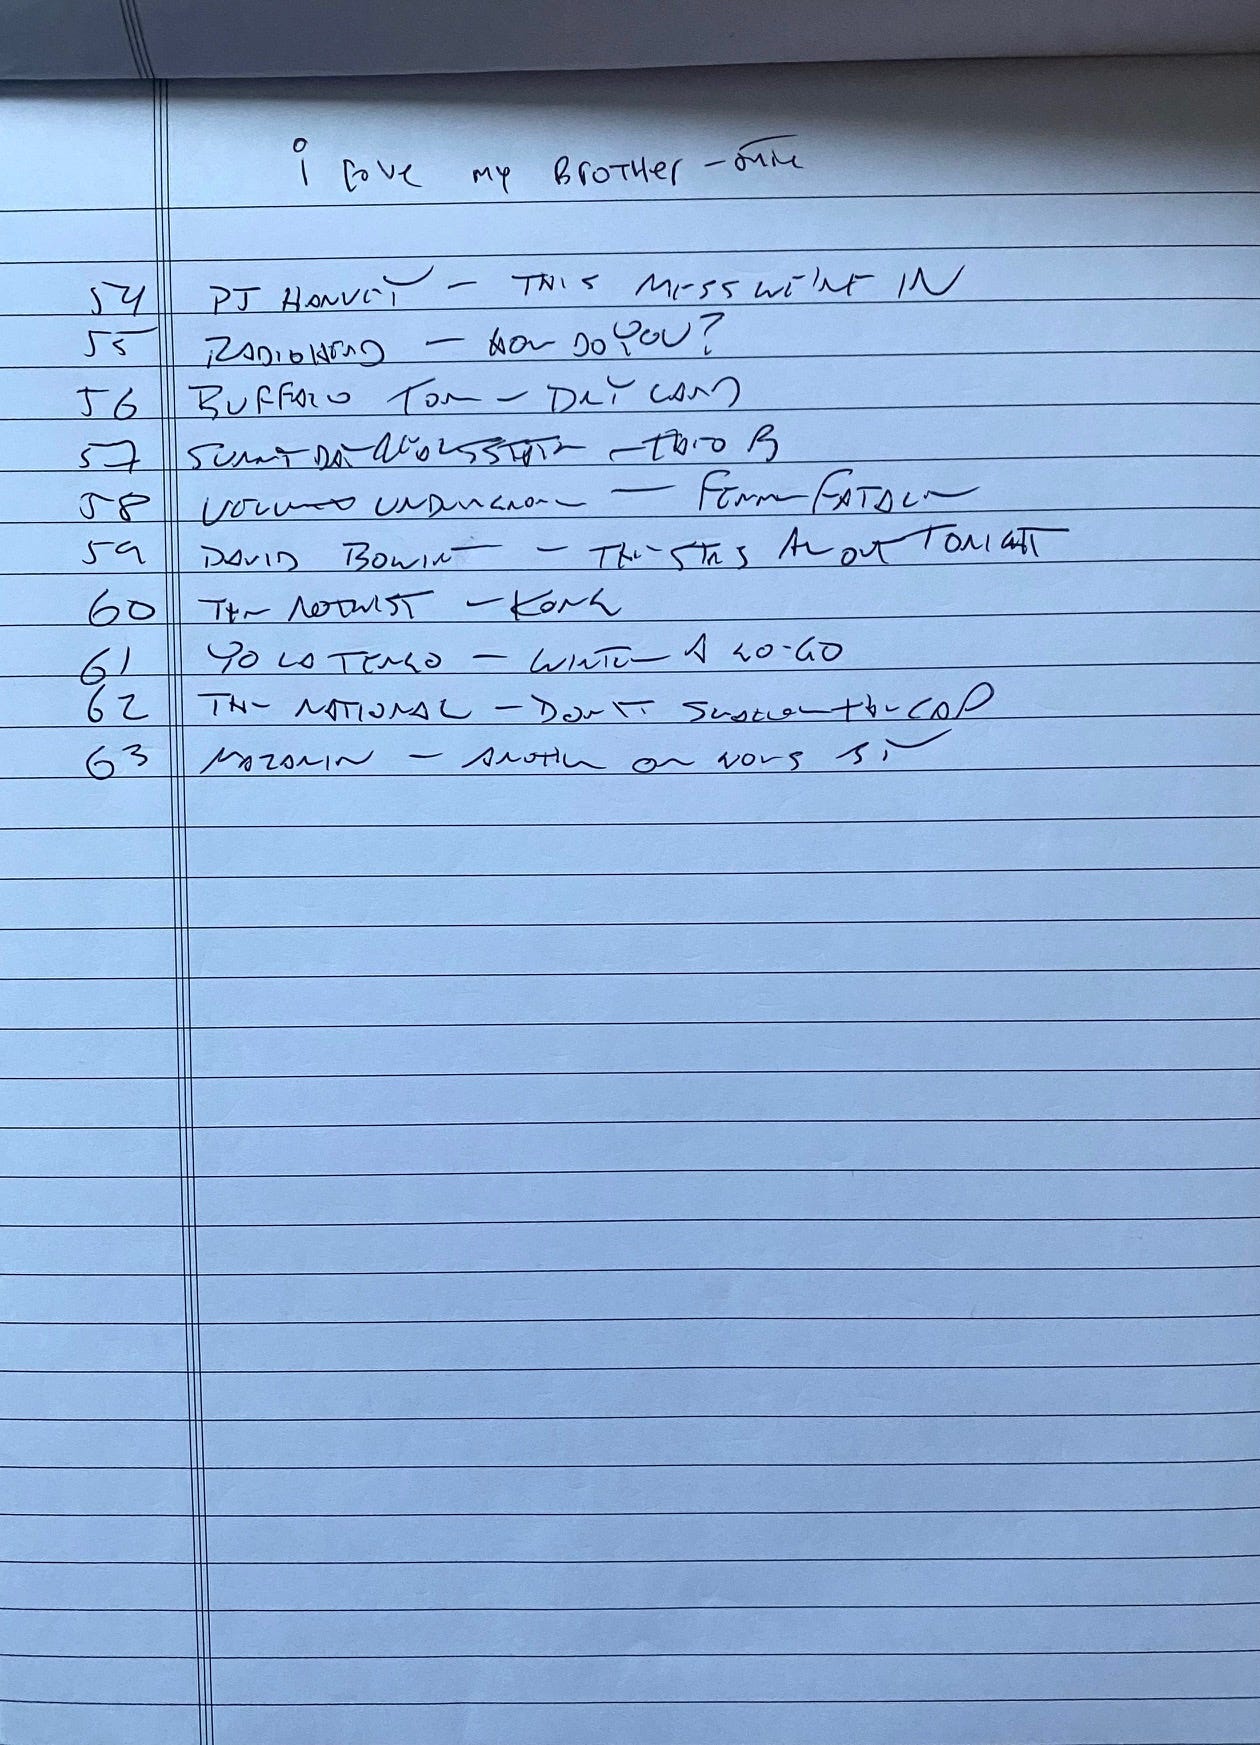 i love my BROTHER -
54 PJ HARVEY - THIS MESS WE'RE IN
55 RADIOHEAD - HOW DO YOU?
56 BUFFALO TOM - DRY LAND
57 SUNNY DAY REAL ESTATE - B
58 VELVET UNDERGROUND - FEMME FATALE
59 DAVID BOWIE - THE STARS ARE OUT TONIGHT
60 THE NOTWIST - KONG
61 YO LA TENGO - WINTER A GO-GO
62 THE NATIONAL - DON'T SWALLOW the CAP
63 MAZARIN - ANOTHER ONE GOES BY